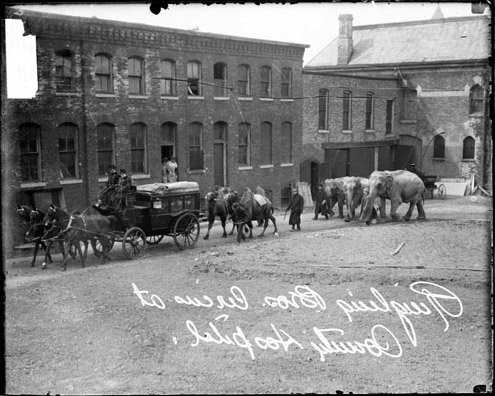 Ringling Bros. Circus at
County Hospital,